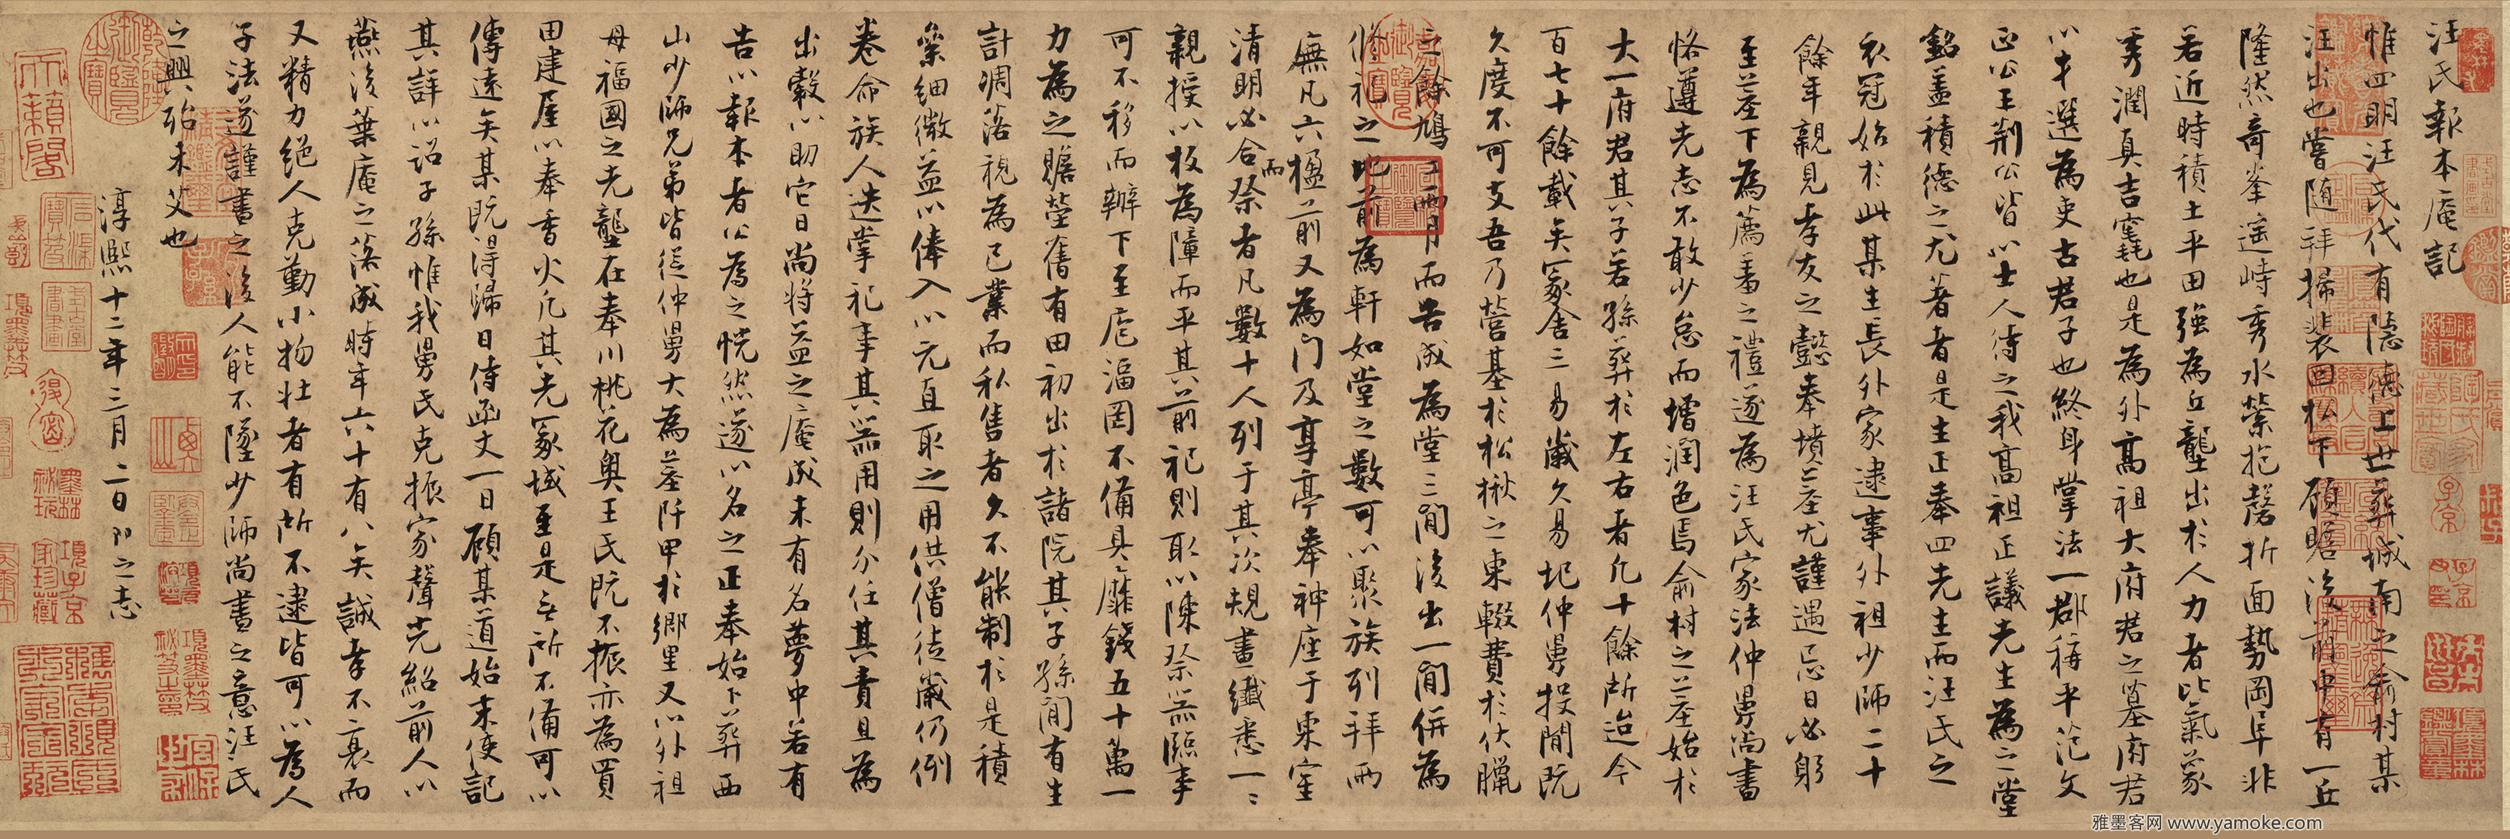 汪氏報本庵記
惟四明汪氏代有隱德上世葬城南之俞村某
汪出也嘗随拜掃裴回松下顧瞻後前中有一丘
隆然奇峯遥峙秀水縈抱磬折面勢岡阜非
若近時積土平田強為丘壟出於人力者比氣象
秀潤真吉宅也是為外高祖大府君之墓府君
以才選為吏古君子也終身掌法一郡稱平范文
正公王荆公皆以士人待之我高祖正議先生為之堂
銘盖積德之尤著者是生正奉四先生而汪氏之
衣冠始於此某生長外家逮事外祖少師二十
餘年親見孝友之懿奉墳墓尤謹遇忌日必躬
至墓下為薦羞之禮遂為汪氏家法仲舅尚書
恪遵先志不敢少怠而增潤色焉俞村之墓始於
大一府君其子若孫葬於左右者凡十餘所迨今
百七十餘載矣冢舍三易歲久易圮仲舅投閒既
久度不可支吾乃營基於松楸之東輟費於伏臘
之餘鳩工兩月而告成為堂三間後出一間併為
脩祀之地前為軒如堂之數可以聚族列拜兩
廡凡六楹前又為門及享亭奉神座于東室
而
清明必合祭者凡數十人列于其次規畫纖悉一〻
親授以板為障而平其前祀則取以陳祭器臨事
可不移而辦下至庖湢罔不備具靡錢五十萬一
力為之贍塋舊有田初出於諸院其子孫間有生
計凋落視為已業而私售者久不能制於是積
絫細微益以俸入以元直取之用供僧徒歲仍例
卷命族人迭掌祀事其器用則分任其責且為
出穀以助它日尚將益之庵成未有名夢中若有
告以報本者公為之恍然遂以名之正奉始卜葬西
山少師兄弟皆從仲舅大為墓阡甲於鄉里又以外祖
母福國之先壟在奉川桃花奥王氏既不振亦為買
田建屋以奉香火凡其先冢域至是无所不備可以
傳遠矣某既得歸日侍函丈一日顧某道始末使記
其詳以詔子孫惟我舅氏克振家聲光紹前人以
燕後葉庵之落成時年六十有八矣誠孝不衰而
又精力絕人克勤小物壮者有所不逮皆可以為人
子法遂謹書之後人能不墜少師尚書之意汪氏
之興殆未艾也
淳熙十二年三月二日即之志
天籟閣
項子京家珍藏
雅墨客网 www.yamoke.com